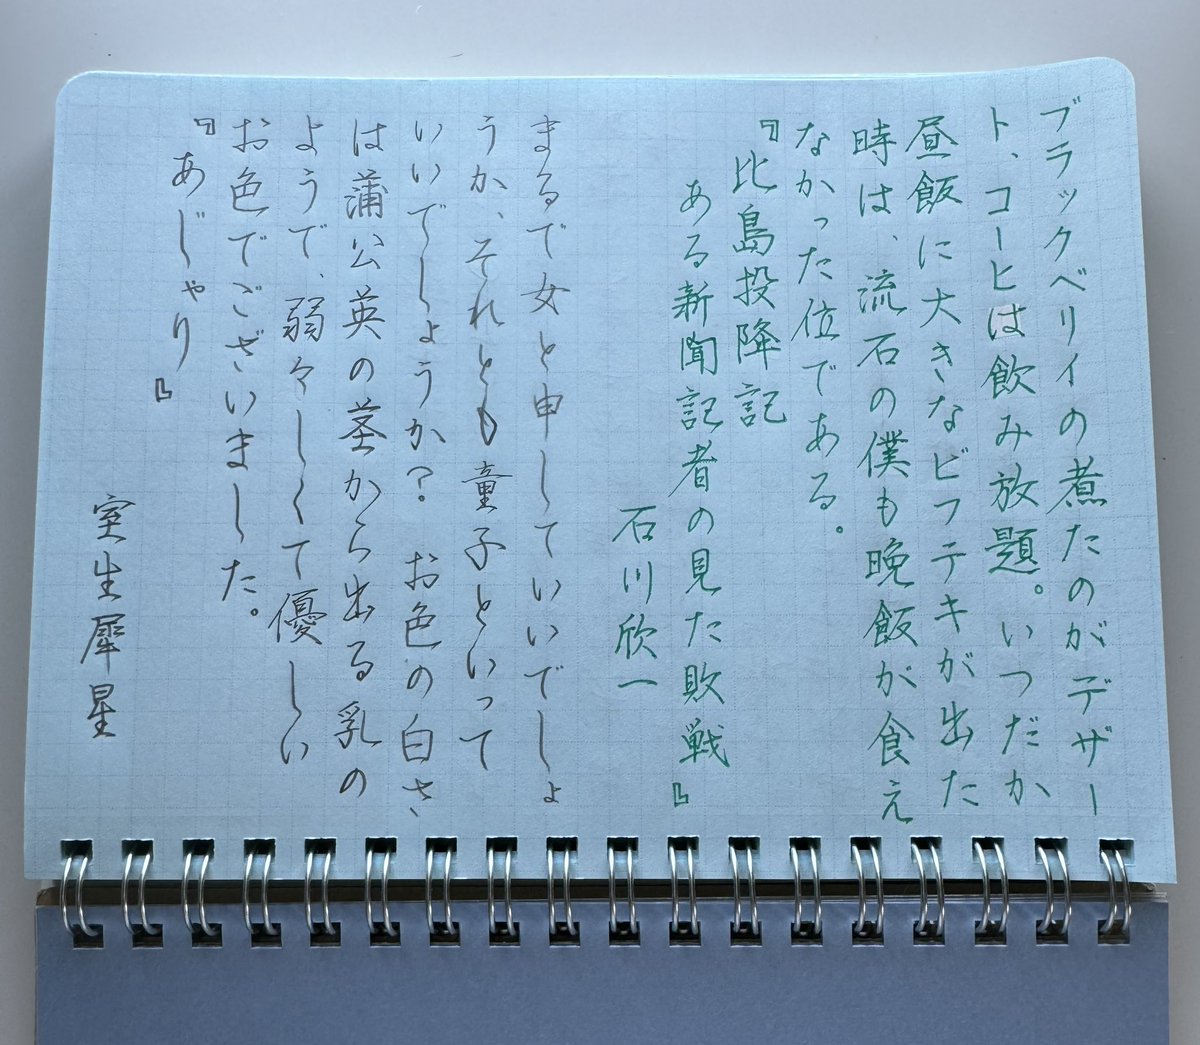 ブラックベリイの煮たのがデザー
ト、コーヒは飲み放題。いつだか
昼飯に大きなビフテキが出た
時は、流石の僕も晩飯が食え
なかった位である。
『比島投降記
ある新聞記者の見た敗戦』
石川欣一
まるで女と申していいでしょ
うか、それとも童子といって
いいでしょうか？お色の白さ
は蒲公英の茎から出る乳の
ようで、弱々しくて優しい
お色でございました。
『あじゃり』
室生犀星